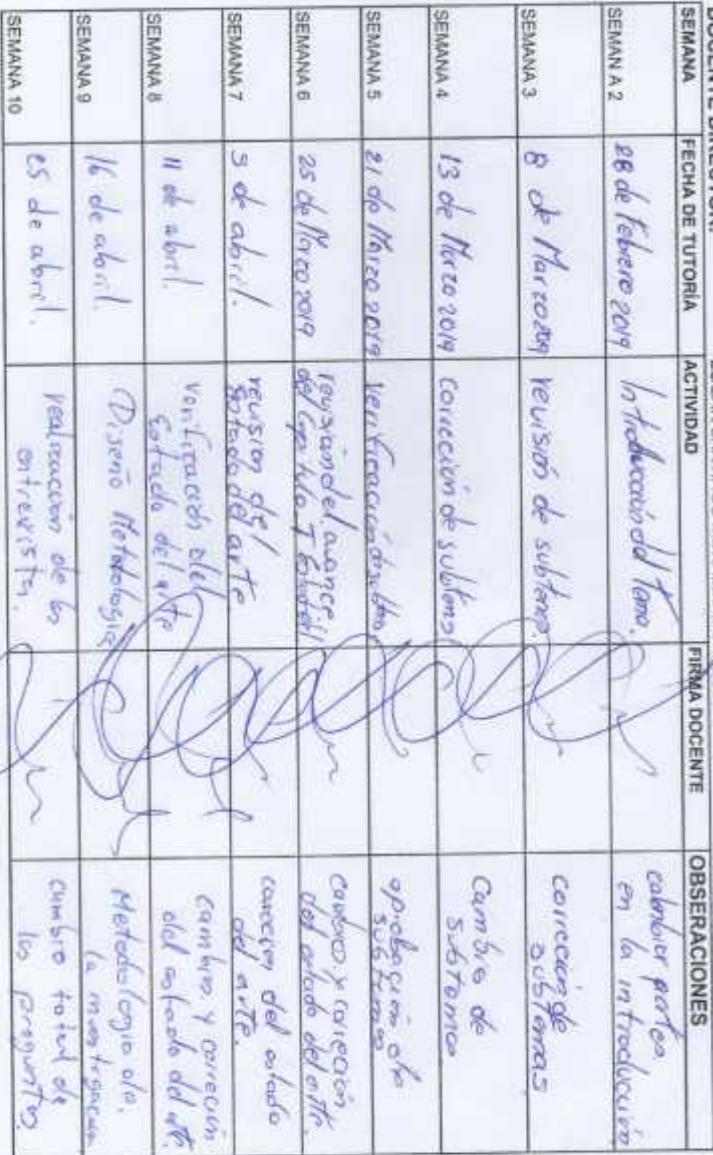 DOCENTE DIRECTOR:
SEMANA FECHA DE TUTORÍA ACTIVIDAD FIRMA DOCENTE OBSERACIONES
SEMAN A 2 28 de Febrero 2019 Introducción del Tema. cambiar partes
en la introducción
SEMANA 3 8 de Marzo 2019 revisión de subtemas. corrección de
subtemas
SEMANA 4 13 de Marzo 2019 Corrección de subtemas Cambio de
subtemas
SEMANA 5 21 de Marzo 2019 Verificación de subtemas aprobación de
subtemas
SEMANA 6 25 de Marzo 2019 revisión del avance
del Capitulo I cambios y corrección
del estado del arte.
SEMANA 7 3 de abril. revisión del
Estado del arte corrección del estado
del arte.
SEMANA 8 11 de abril. Verificación del
Estado del arte cambios y corrección
del estado del arte.
SEMANA 9 16 de abril. Diseño Metodologico Metodologia de
la investigación
SEMANA 10 25 de abril. realización de las
entrevistas. cambio total de
las preguntas